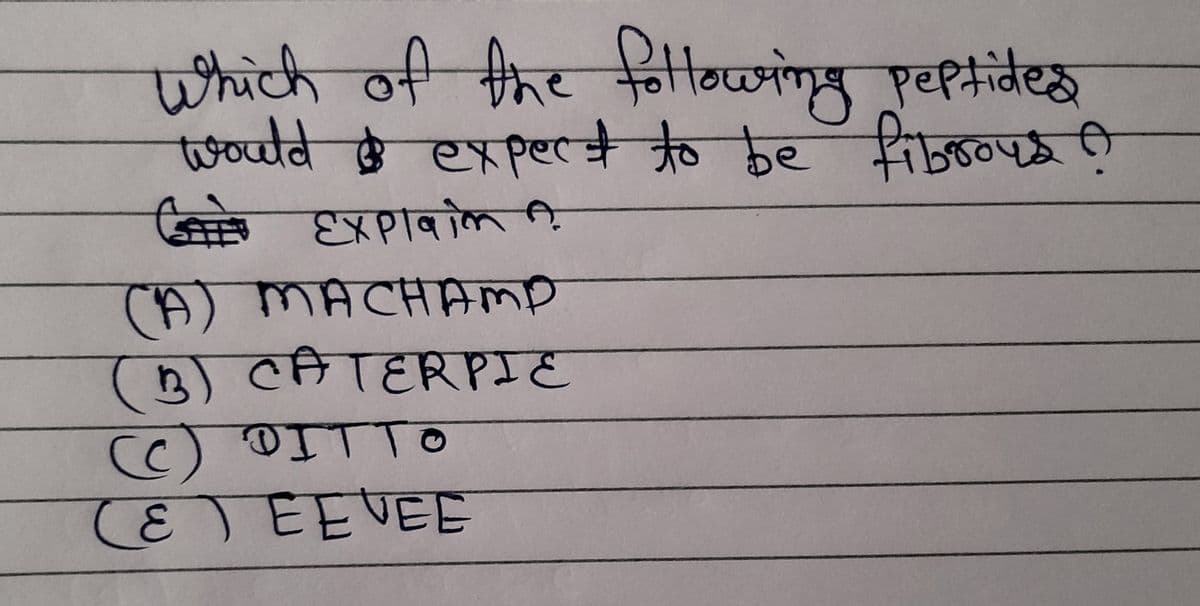 which of the following peptides
would expect to be fibrous ?
Explain ?
(A) MACHAMP
(B) CATERPIE
(C) DITTO
(E) EEVEE